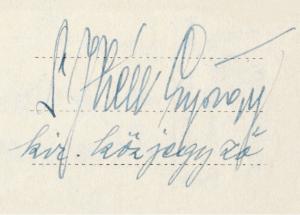 Dr Théll György
kir. közjegyző